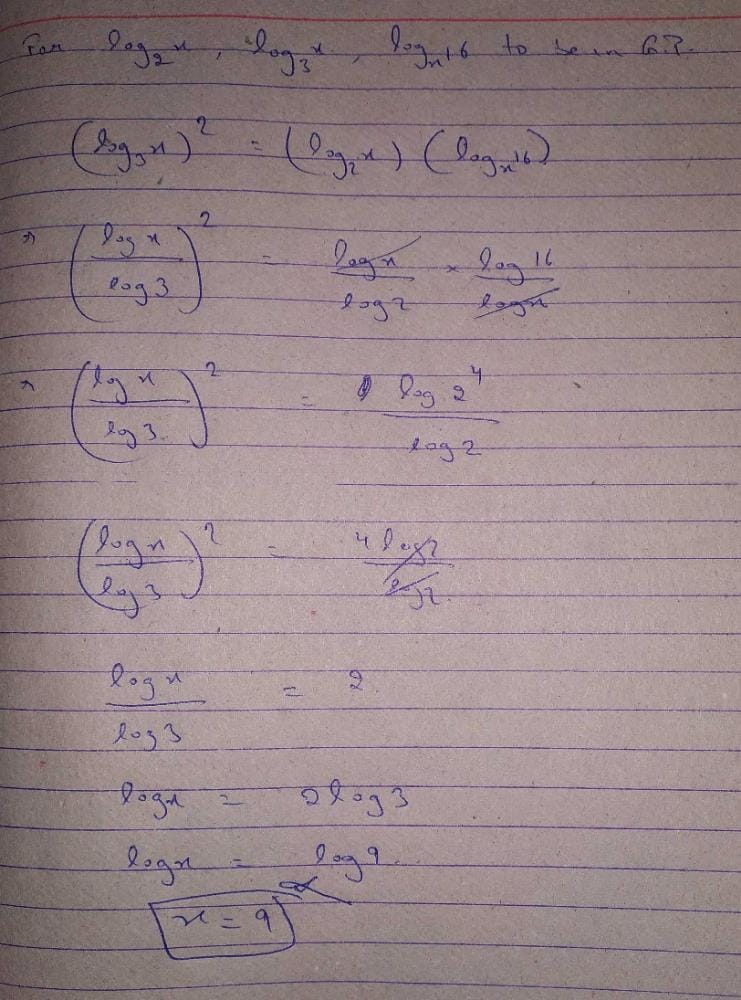 For log₂x, log₃x, logₓ16 to be in G.P.
(log₃x)² = (log₂x) (logₓ16)
⇒ (log x / log 3)² = log x / log 2 × log 16 / log x
⇒ (log x / log 3)² = log 2⁴ / log 2
(log x / log 3)² = 4 log 2 / log 2
log x / log 3 = 2
log x = 2 log 3
log x = log 9
x = 9